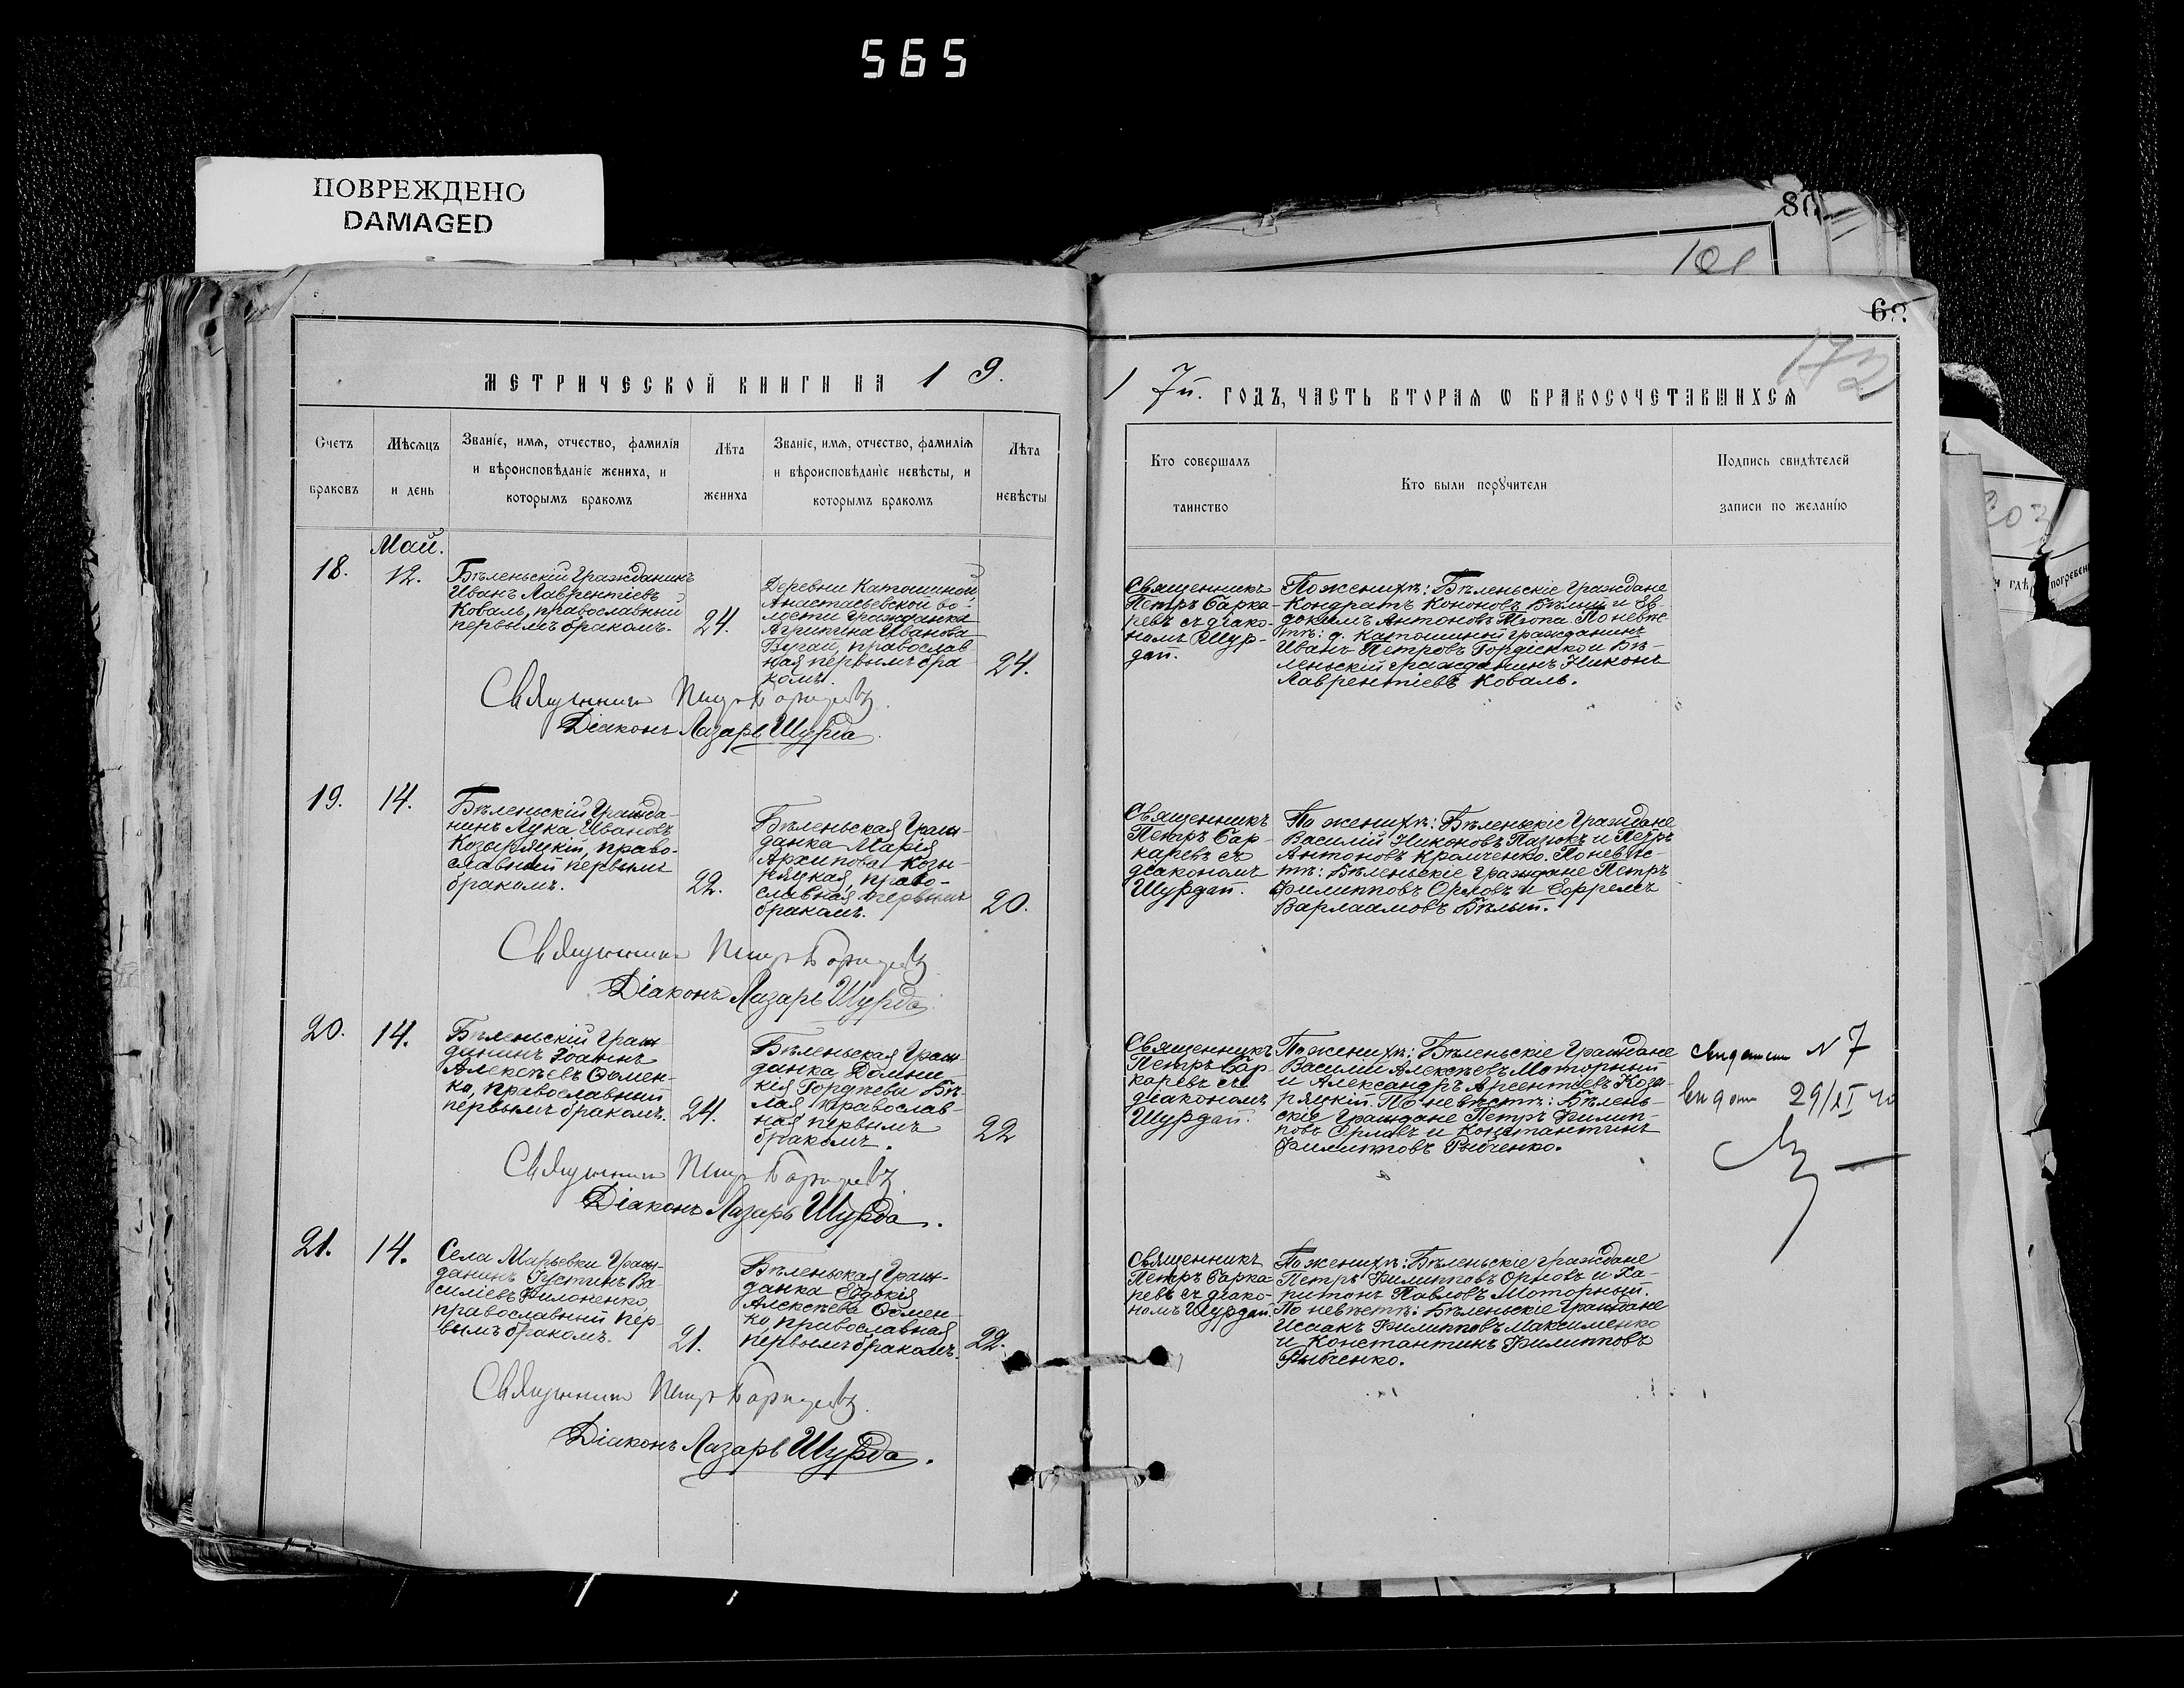 565
ПОВРЕЖДЕНО
DAMAGED
80
101
68
172
МЕТРИЧЕСКОЙ КНИГИ НА 1 9.
1 7й. ГОДЪ, ЧАСТЬ ВТОРАЯ Ѡ БРАКОСОЧЕТАВШИХСЯ
Счетъ
браковъ
Мѣсяцъ
и день
Званіе, имя, отчество, фамилія
и вѣроисповѣданіе жениха, и
которымъ бракомъ
Лѣта
жениха
Званіе, имя, отчество, фамилія
и вѣроисповѣданіе невѣсты, и
которымъ бракомъ
Лѣта
невѣсты
Кто совершалъ
таинство
Кто были поручители
Подпись свидѣтелей
записи по желанію
Май.
18.
12.
Бѣленьскій Гражданинъ
Иванъ Лаврентіевъ
Коваль, православный
первымъ бракомъ.
24.
Деревни Катюшиной,
Анастасьевской во-
лости гражданка
Агрипина Иванова
Бугай, православ
ная первымъ бра
комъ.
24.
Священникъ
Петръ Барка-
ревъ съ діако-
номъ Шур-
дой.
По женихѣ: Бѣленьскіе Граждане
Кондратъ Кононовъ Бѣлый и Ев-
докимъ Антоновъ Тюпа. По невѣс
тѣ: д. Катюшиной гражданинъ
Иванъ Петровъ Гордіенко и Бѣ-
леньскій гражданинъ Никонъ
Лаврентіевъ Коваль.
Священникъ Петръ Баркаревъ
Діаконъ Лазарь Шурда.
19.
14.
Бѣленьскій Гражда-
нинъ Лука Ивановъ
Козыряцкій, право-
славный первымъ
бракомъ.
22.
Бѣленьская Граж-
данка Марія
Архипова Козы-
ряцкая, право-
славная первымъ
бракомъ.
20.
Священникъ
Петръ Бар-
каревъ съ
діакономъ
Шурдой.
По женихѣ: Бѣленьскіе Граждане
Василій Никоновъ Пазюкъ и Петръ
Антоновъ Крамченко. По невѣс-
тѣ: Бѣленьскіе Граждане Петръ
Филипповъ Орловъ и Ефремъ
Варлаамовъ Бѣлый.
Священникъ Петръ Баркаревъ
Діаконъ Лазарь Шурда.
20.
14.
Бѣленьскій Граж
данинъ Іоаннъ
Алексѣевъ Фомен-
ко, православный
первымъ бракомъ.
24.
Бѣленьская Граж-
данка Домни-
кія Гордѣева Бѣ-
лая православ-
ная первымъ
бракомъ.
22
Священникъ
Петръ Бар-
каревъ съ
діакономъ
Шурдой.
По женихѣ: Бѣленьскіе Граждане
Василій Алексѣевъ Моторный
и Александръ Арсентіевъ Козы-
ряцкій. По невѣстѣ: Бѣлень-
скіе Граждане Петръ Филип-
повъ Орловъ и Константинъ
Филипповъ Рыбченко.
N 7
29/XI
Священникъ Петръ Баркаревъ
Діаконъ Лазарь Шурда.
21.
14.
Села Марьевки Граж-
данинъ Іустинъ Ва-
силіевъ Филоненко,
православный пер-
вымъ бракомъ.
21.
Бѣленьская Граж-
данка Евдокія
Алексѣева Фомен-
ко, православная
первымъ бракомъ.
22.
Священникъ
Петръ Барка-
ревъ съ діако-
номъ Шурдой.
По женихѣ: Бѣленьскіе граждане
Петръ Филипповъ Орловъ и Ха-
ритонъ Павловъ Моторный.
По невѣстѣ: Бѣленьскіе Граждане
Исаакъ Филипповъ Максименко
и Константинъ Филипповъ
Рыбченко.
Священникъ Петръ Баркаревъ
Діаконъ Лазарь Шурда.